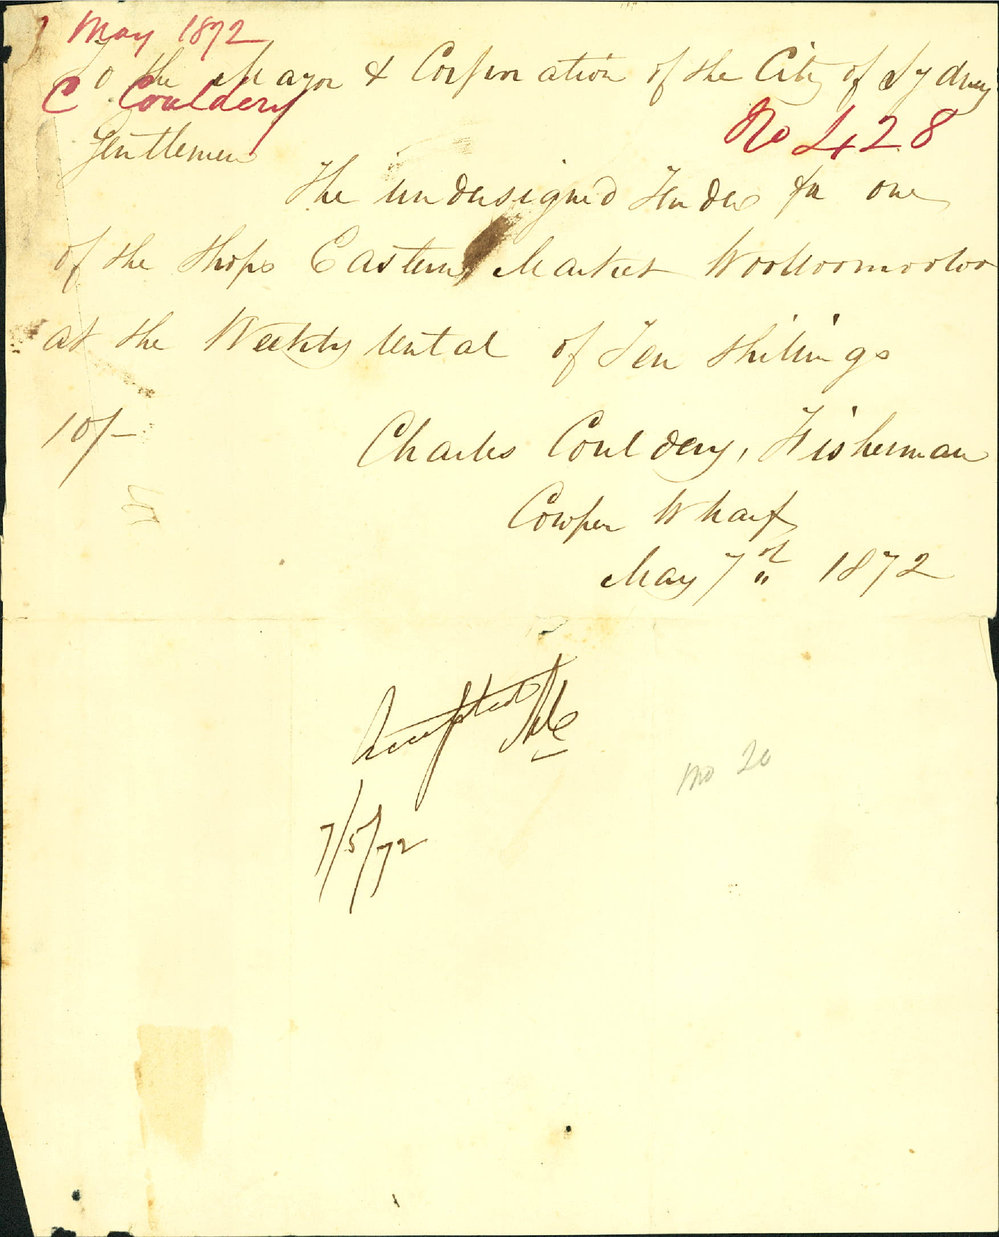 7 May 1872
To the Mayor & Corporation of the City of Sydney
C Couldery
No 428
Gentlemen
The undersigned Tender for one
of the Shops Eastern Market Woolloomooloo
at the Weekly rental of Ten Shillings
10/-
Charles Couldery, Fisherman
Cowper Wharf
May 7th 1872
Accepted
7/5/72
No 20